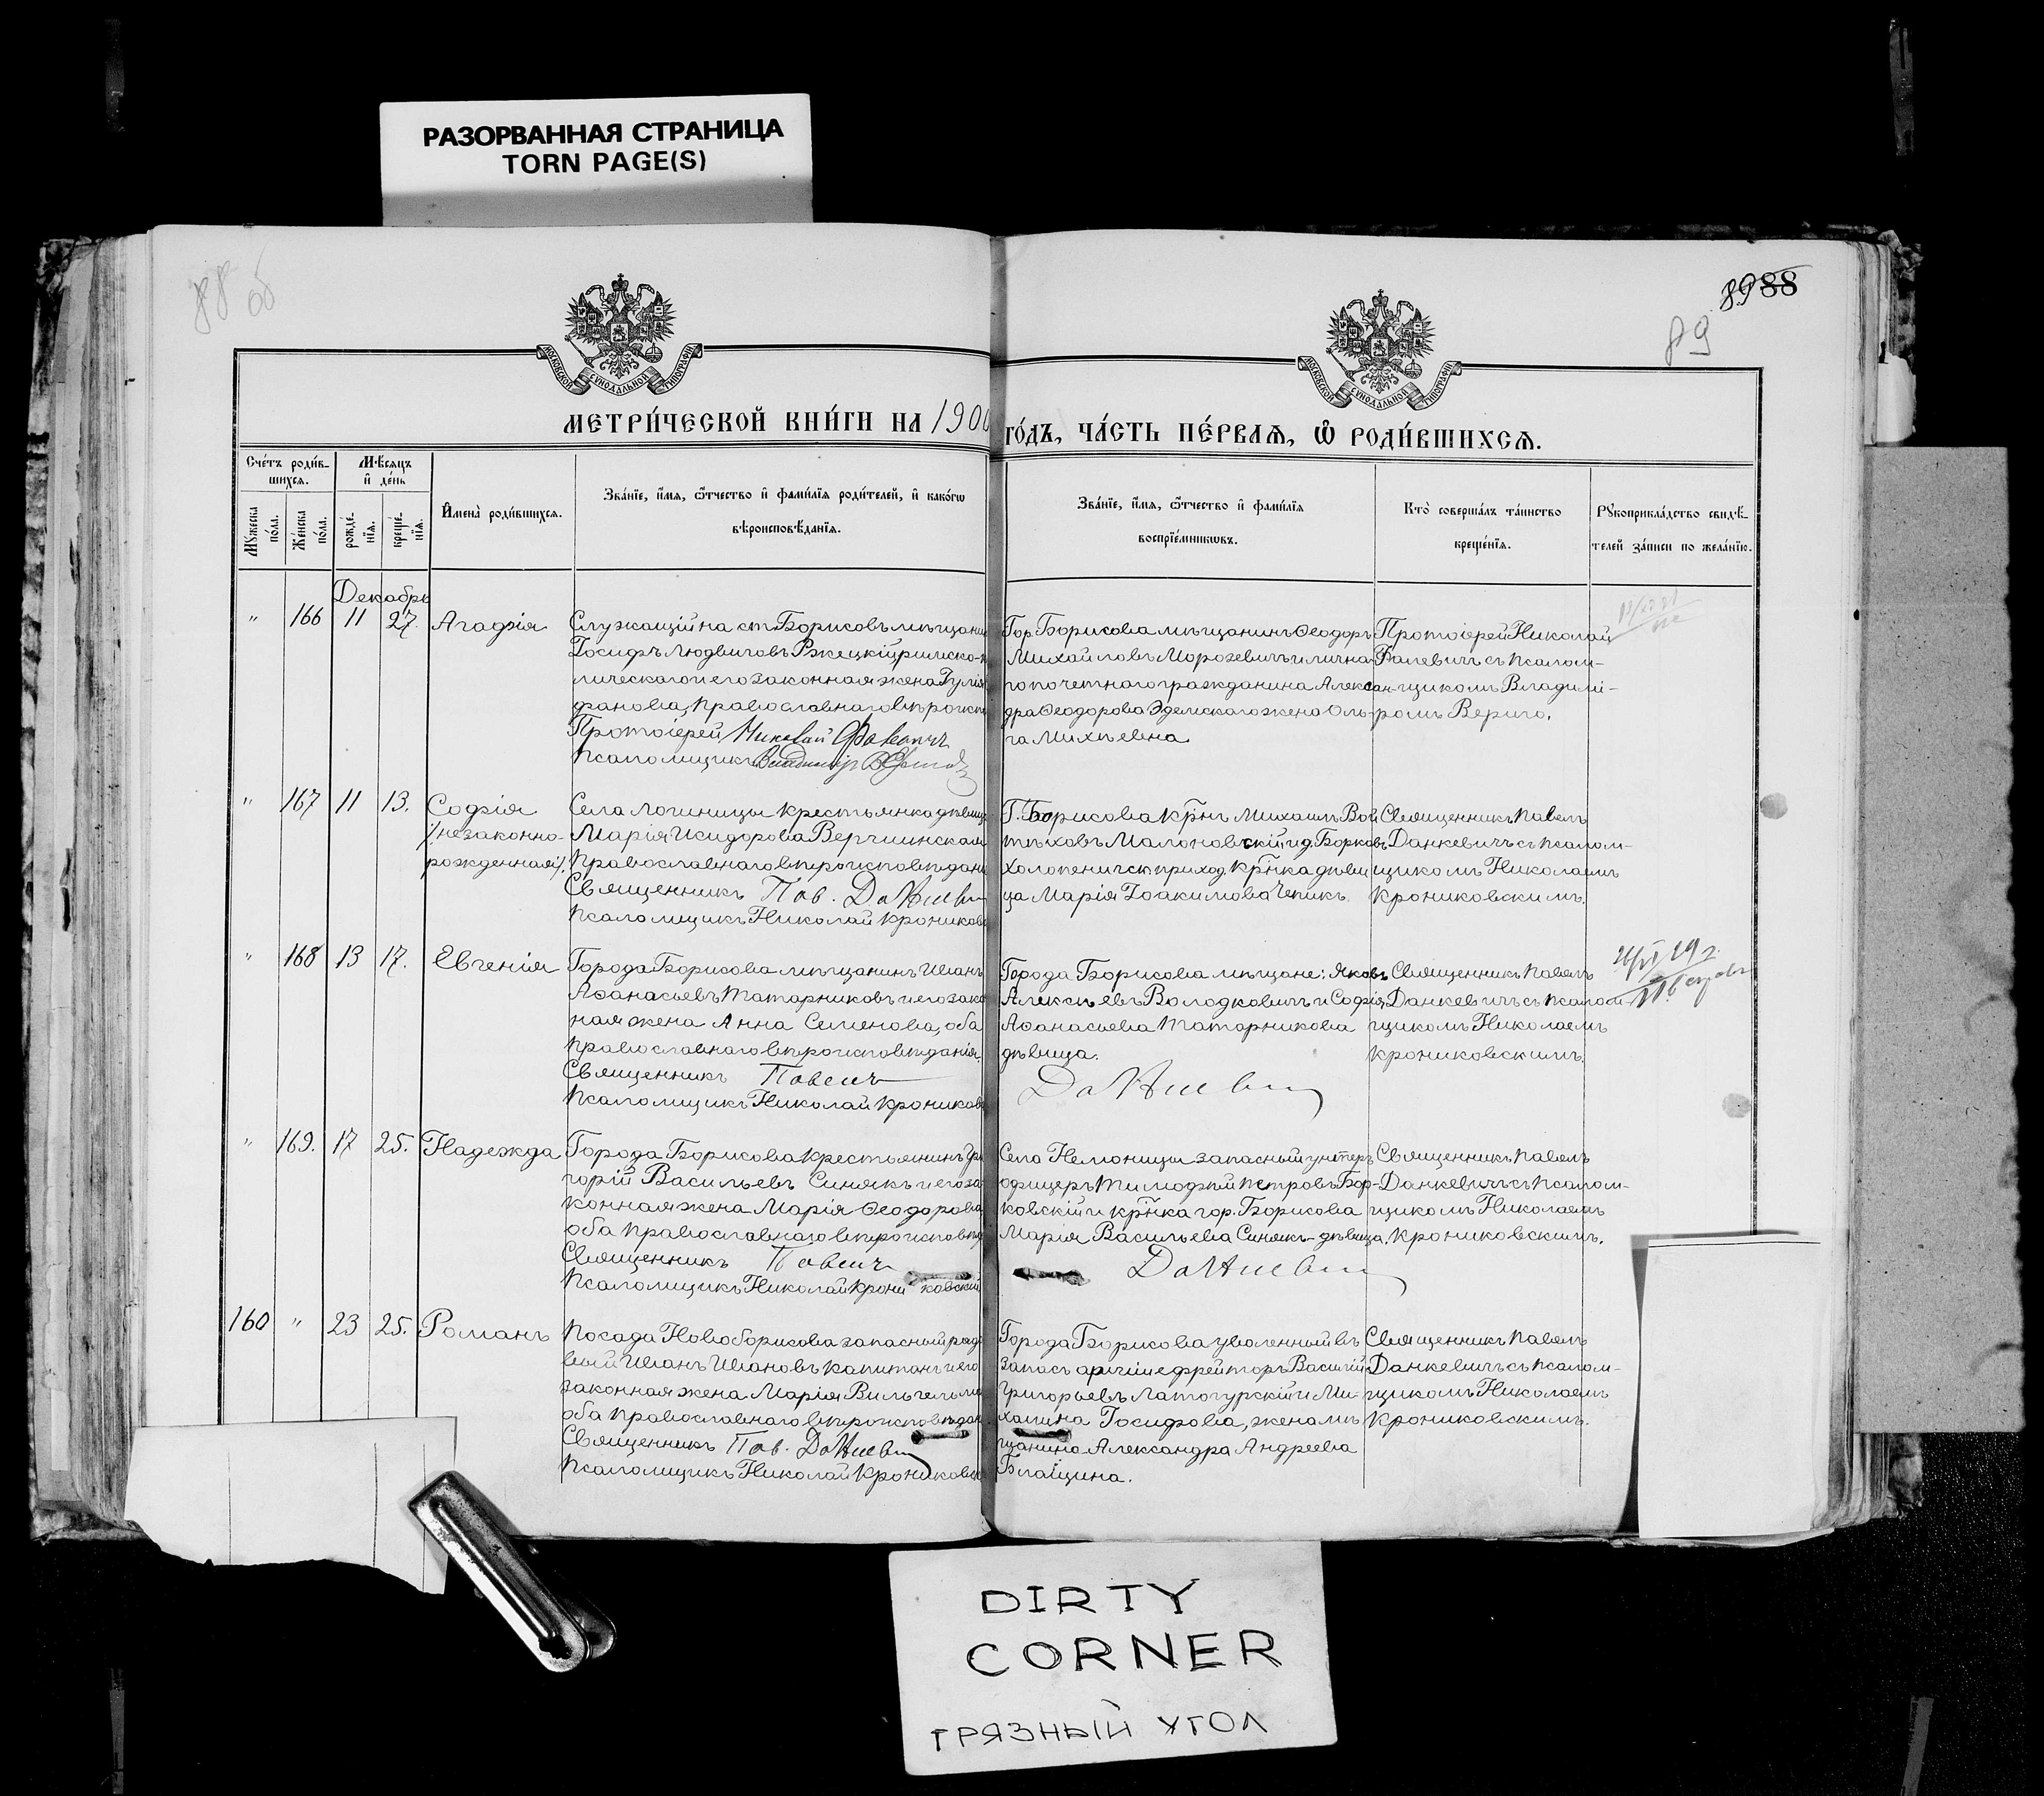 РАЗОРВАННАЯ СТРАНИЦА
TORN PAGE(S)
88 об
8988
89
МОСКОВСКОЙ СѴНОДАЛЬНОЙ ТИПОГРАФІИ
МОСКОВСКОЙ СѴНОДАЛЬНОЙ ТИПОГРАФІИ
МЕТРИ́ЧЕСКОЙ КНИ́ГИ НА 1900
ГО́ДЪ, ЧА́СТЬ ПЕ́РВАЯ, Ѽ РОДИ́ВШИХСЯ.
Сче́тъ роди́в-
шихся.
Мѣсяцъ
и҆ де́нь
Мꙋ́жеска по́ла.
Же́нска по́ла.
рожде́-
нїя.
креще́-
нїя.
И҆мена̀ роди́вшихся.
Зва́нїе, и҆́мя, ѻ҆́тчество и҆ фами́лїя роди́телей, и҆ како́гѡ
вѣроисповѣ́данїя.
Зва́нїе, и҆́мя, ѻ҆́тчество и҆ фами́лїя
воспрїе́мникѡвъ.
Кто̀ соверша́лъ та́инство
креще́нїя.
Рꙋкоприкла́дство свидѣ́-
телей за́писи по жела́нїю.
Декабрь
" 166 11 27. Агафія
Служащій на ст. Борисовъ мѣщани
Іосифъ Людвиговъ Ржецкій, римско-к
лическаго и его законная жена Іулія
фанова, православнаго вѣроисп
Протоіерей Николай Фалевичъ
Псаломщикъ Владиміръ Вериго
Гор. Борисова мѣщанинъ Ѳеодоръ
Михайловъ Морозевичъ и лична
го почетнаго гражданина Алексан-
дра Ѳеодорова Эдемскаго жена Оль-
га Михѣевна
Протоіерей Николай
Фалевичъ съ псалом-
щикомъ Владимі-
ромъ Вериго.
" 167 11 13. Софія
(незаконно-
рожденная).
Села Логиницы крестьянка дѣвица
Марія Исидорова Верчинская
Православнаго вѣроисповѣдан
Священникъ Пав. Данкеви
Псаломщикъ Николай Крониковс
Г. Борисова кр̃нъ Михаилъ Вой
тѣховъ Малоновскій и д. Борковъ
Холопеничск. приход. кр̃нка дѣви
ца Марія Іоакимова Чепикъ.
Священникъ Павелъ
Данкевичъ съ псалом-
щикомъ Николаемъ
Крониковскимъ.
" 168 13 17. Евгенія
Города Борисова мѣщанинъ Иванъ
Аѳанасьевъ Татарниковъ и его зако
ная жена Анна Семенова, оба
православнаго вѣроисповѣданія.
Священникъ Павелъ
Псаломщикъ Николай Крониковс
Города Борисова мѣщане: Яковъ
Алексѣевъ Володковичъ и Софія
Аѳанасьева Татарникова
дѣвица.
Данкевич
Священникъ Павелъ
Данкевичъ съ псалом
щикомъ Николаемъ
Крониковскимъ.
" 169. 17 25. Надежда
Города Борисова крестьянинъ Гри
горій Васильевъ Синякъ и его за
конная жена Марія Ѳеодорова
оба православнаго вѣроисповѣд
Священникъ Павелъ
Псаломщикъ Николай Крониковскій
Села Немоницы запасный унтеръ
офицеръ Тимофей Петровъ Бор-
ковскій и кр̃нка гор. Борисова
Марія Васильева Синякъ - дѣвица.
Данкевич
Священникъ Павелъ
Данкевичъ съ псалом-
щикомъ Николаемъ
Крониковскимъ.
160 " 23 25. Романъ
Посада Новоборисова запасный рядо
вый Иванъ Ивановъ Капитанъ и его
законная жена Марія Вильгельмо
оба православнаго вѣроисповѣдан
Священникъ Пав. Данкевич
Псаломщикъ Николай Крониковск
Города Борисова уволенный въ
запасъ арміи ефрейторъ Василій
Григорьевъ Латогурскій и Ми-
халина Іосифова, жена мѣ
щанина Александра Андреева
Блащина.
Священникъ Павелъ
Данкевичъ съ псалом-
щикомъ Николаемъ
Крониковскимъ.
DIRTY
CORNER
ГРЯЗНЫЙ УГОЛ